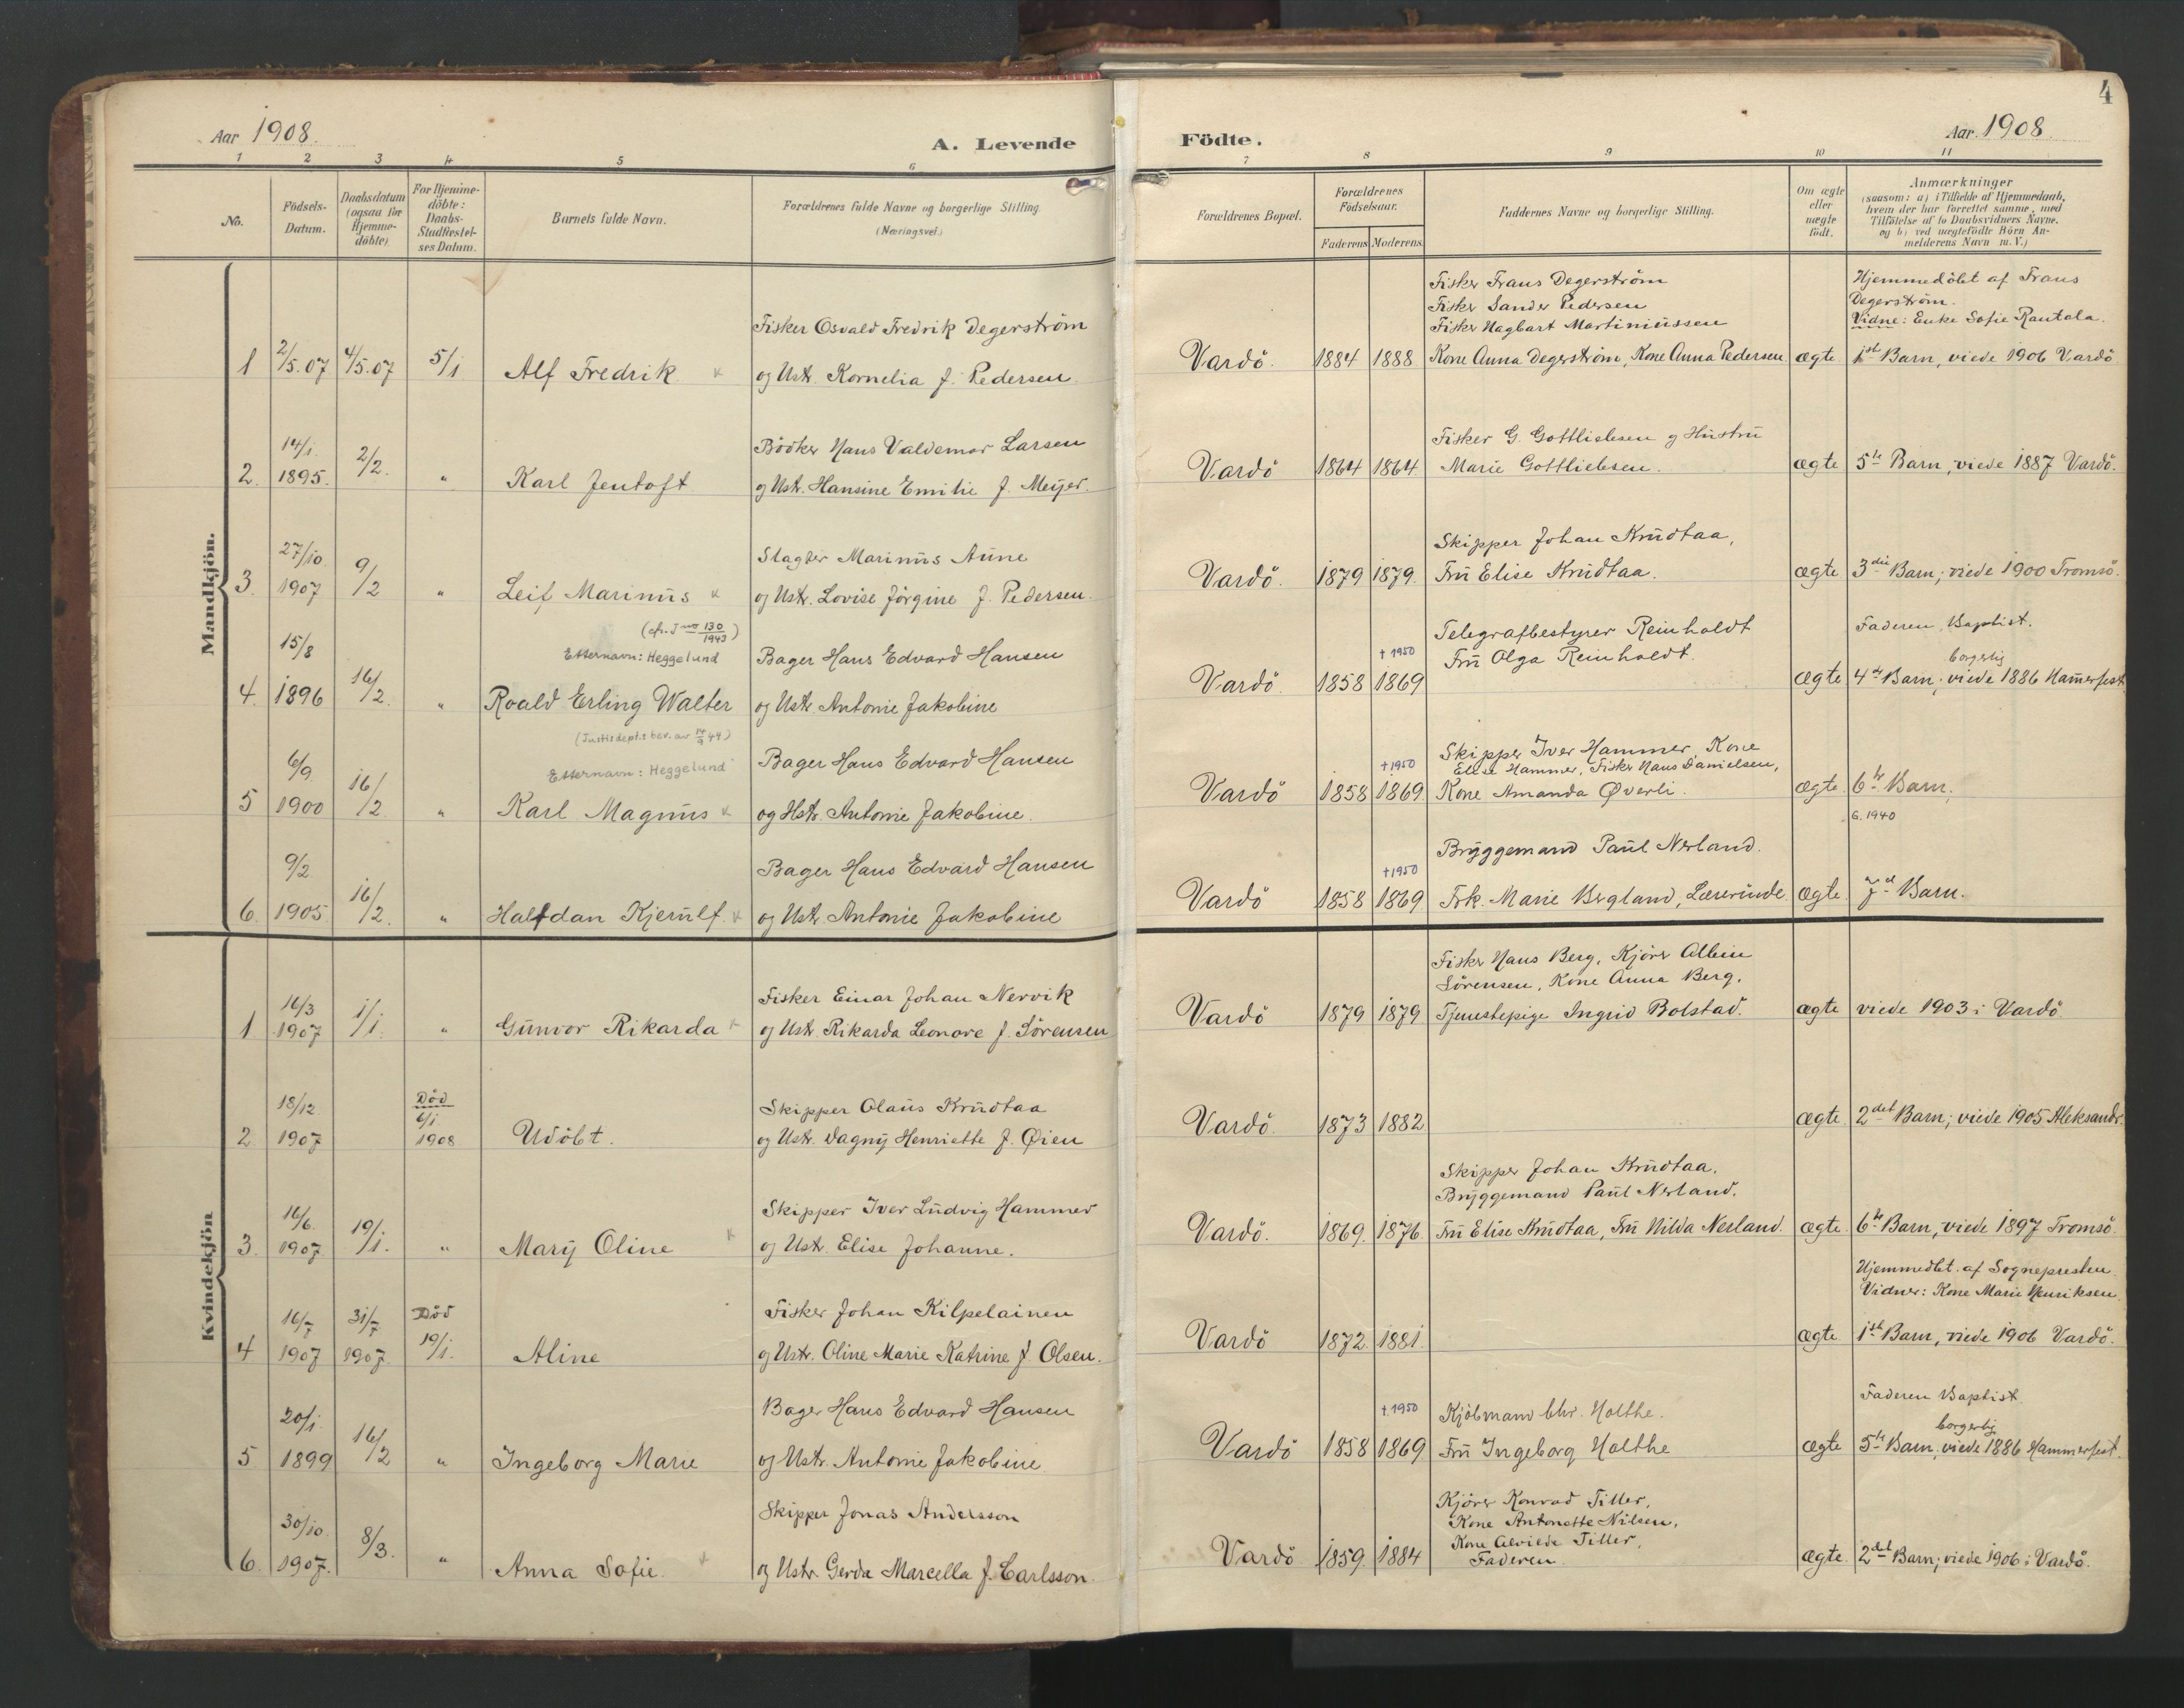 4
Aar 1908.
A. Levende
Födte.
Aar 1908
1 2 3 4 5 6 7 8 9 10 11
No.
Födsels-
Datum.
Daabsdatum
(ogsaa for
Hjemme-
döbte)
For Hjemme-
döbte:
Daabs-
Stadfæstel-
ses Datum.
Barnets fulde Navn.
Forældrenes fulde Navne og borgerlige Stilling.
(Næringsvei.)
Forældrenes Bopæl.
Forældrenes
Födselsaar.
Faderens Moderens
Faddernes Navne og borgerlige Stilling.
Om ægte
eller
uægte
födt.
Anmærkninger
(saasom: a) i Tilfælde af Hjemmedaab,
hvem der har forrettet samme, med
Tilföielse af to Daabsvidners Navne.
og b) ved uægtefödte Börn An-
melderens Navn m. V.)
Mandkjön.
Fisker Frans Degerström
Hjemmedöbt af Frans
Fisker Sander Pedersen
Degerström.
Fisker Osvald Fredrik Degerström
Fisker Hagbart Martiniussen
Vidne: Enke Sofie Rantala.
1 2/5.07 4/5.07 5/1 Alf Fredrik og Hstr. Kornelia f. Pedersen
Vardö. 1884 1888 Kone Anna Degerström, Kone Anna Pedersen ægte 1ste Barn, viede 1906 Vardö
14/1.
Bödker Hans Valdemar Larsen
Fisker G. Gottliebsen og Hustru
2. 1895. 2/2. " Karl Jentoft og Hstr. Hansine Emilie f. Meyer.
Vardö 1864 1864 Marie Gottliebsen. ægte 5te Barn, viede 1887 Vardö.
27/10.
Slagter Marinus Aune
Skipper Johan Krudtaa,
3. 1907 9/2 " Leif Marinus og Hstr. Lovise Jörgine f. Pedersen.
Vardö. 1879 1879. Fru Elise Krudtaa. ægte 3die Barn; viede 1900 Tromsö.
(cfr. J no 130/1943)
15/8
Etternavn: Heggelund
Bager Hans Edvard Hansen
Telegrafbestyrer Reinholdt
Faderen Baptist.
† 1950
Fru Olga Reinholdt.
borgerlig
4. 1896 16/2. " Roald Erling Walter og Hstr. Antonie Jakobine
Vardö. 1858 1869 ægte 4de Barn; viede 1886 Hammerfest
(Justisdept.s bev. av 14/9 44)
6/9
Etternavn: Heggelund
Bager Hans Edvard Hansen
Skipper Iver Hammer, Kone
† 1950
Elise Hammer, Fisker Hans Danielsen,
5 1900 16/2. " Karl Magnus og Hstr. Antonie Jakobine.
Vardö 1858 1869 Kone Amanda Øverli. ægte. 6te Barn.
G. 1940
9/2
Bager Hans Edvard Hansen
Bryggemand Paul Nerland.
† 1950
6. 1905 16/2. " Halfdan Kjerulf. og Hstr. Antonie Jakobine
Vardö 1858 1869 Frk. Marie Bergland, Lærerinde. ægte. 7de Barn.
Kvindekjön
Fisker Hans Berg, Kjörer Albin
16/3
Fisker Einar Johan Nervik
Sörensen, Kone Anna Berg,
1 1907 1/1. " Gunvor Rikarda og Hstr. Rikarda Leonore f. Sörensen
Vardö 1879 1879 Tjenestepige Ingrid Bolstad. ægte viede 1903 i Vardö
18/12.
Död
6/1
Skipper Olaus Krudtaa
2 1907 1908 Udöbt. og Hstr. Dagny Henriette f. Øien
Vardö. 1873 1882 ægte. 2det Barn; viede 1905 Aleksandr.
Skipper Johan Krudtaa.
16/6.
Skipper Iver Ludvig Hammer
Bryggemand Paul Nerland.
3. 1907. 19/1. " Mary Oline og Hstr. Elise Johanne.
Vardö. 1869. 1876. Fru Elise Krudtaa, Fru Hilda Nerland. ægte. 6te Barn, viede 1897 Tromsö.
Hjemmedbt. af Sognepresten.
16/7 31/7 Död
Fisker Johan Kilpelainen
Vidner: Kone Marie Henriksen.
4 1907 1907. 19/1. Aline og Hstr. Oline Marie Katrine f. Olsen.
Vardö 1872. 1881. ægte 1ste Barn, viede 1906 Vardö.
20/1.
Bager Hans Edvard Hansen
Faderen Baptist
† 1950
Kjöbmand Chr. Holthe.
borgerlig
5 1899 16/2 " Ingeborg Marie og Hstr. Antonie Jakobine
Vardö 1858 1869 Fru Ingeborg Holthe ægte 5te Barn, viede 1886 Hammerfest.
30/10.
Skipper Jonas Andersson
Kjörer Konrad Tiller,
Kone Antonette Nilsen,
Kone Alvilde Tiller,
6. 1907. 8/3. " Anna Sofie. og Hstr. Gerda Marcella f. Carlsson.
Vardö 1859. 1884 Faderen. ægte. 2det Barn; viede 1906 i Vardö.